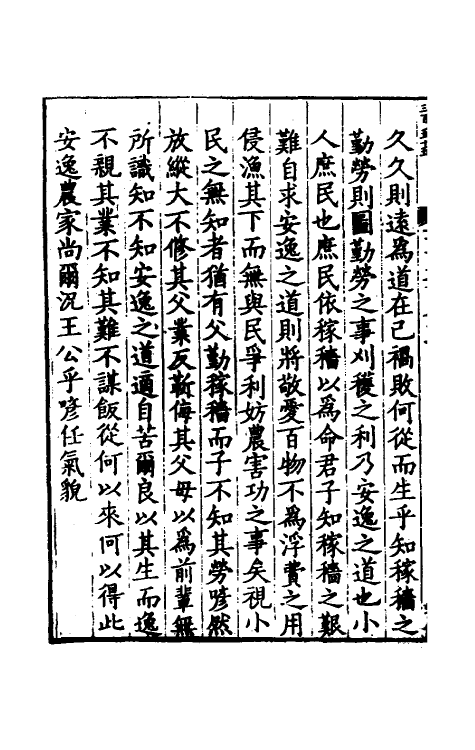 久久則遠為道在已禍敗何從而生乎知稼穡之
勤勞則圖勤勞之事刈穫之利乃安逸之道也小
人庶民也庶民依稼穡以為命君子知稼穡之艱
難自求安逸之道則將敬愛百物不為浮費之用
侵漁其下而無與民爭利妨農害功之事矣視小
民之無知者猶有父勤稼穡而子不知其勞喭然
放縱大不脩其父業反靳侮其父母以為前輩無
所識知不知安逸之道適自苦爾良以其生而逸
不親其業不知其難不謀飯從何以來何以得此
安逸農家尚爾況王公乎喭任氣貌